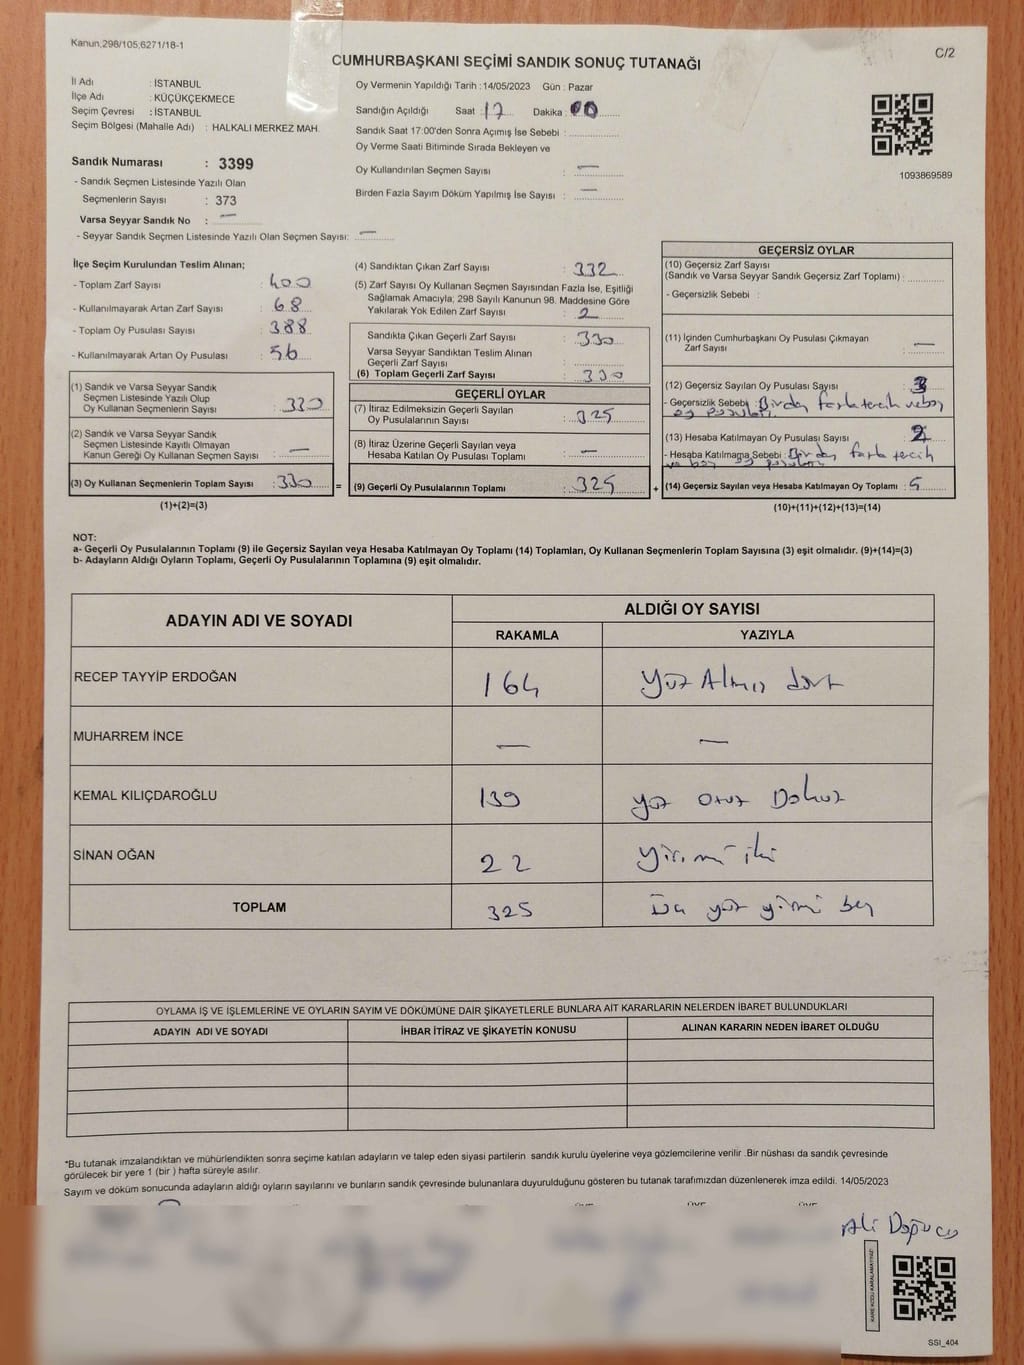 Kanun,298/105,6271/18-1
C/2
CUMHURBAŞKANI SEÇİMİ SANDIK SONUÇ TUTANAĞI
İl Adı : İSTANBUL
İlçe Adı : KÜÇÜKÇEKMECE
Seçim Çevresi : İSTANBUL
Seçim Bölgesi (Mahalle Adı) : HALKALI MERKEZ MAH.
Sandık Numarası : 3399
- Sandık Seçmen Listesinde Yazılı Olan
Seçmenlerin Sayısı : 373
Varsa Seyyar Sandık No : —
- Seyyar Sandık Seçmen Listesinde Yazılı Olan Seçmen Sayısı: —
Oy Vermenin Yapıldığı Tarih : 14/05/2023 Gün : Pazar
Sandığın Açıldığı Saat : 17 Dakika : 00
Sandık Saat 17:00'den Sonra Açımış İse Sebebi :
Oy Verme Saati Bitiminde Sırada Bekleyen ve
Oy Kullandırılan Seçmen Sayısı : —
Birden Fazla Sayım Döküm Yapılmış İse Sayısı : —
1093869589
İlçe Seçim Kurulundan Teslim Alınan;
- Toplam Zarf Sayısı : 400
- Kullanılmayarak Artan Zarf Sayısı : 68
- Toplam Oy Pusulası Sayısı : 388
- Kullanılmayarak Artan Oy Pusulası : 56
(1) Sandık ve Varsa Seyyar Sandık
Seçmen Listesinde Yazılı Olup
Oy Kullanan Seçmenlerin Sayısı : 330
(2) Sandık ve Varsa Seyyar Sandık
Seçmen Listesinde Kayıtlı Olmayan
Kanun Gereği Oy Kullanan Seçmen Sayısı : —
(3) Oy Kullanan Seçmenlerin Toplam Sayısı : 330 =
(1)+(2)=(3)
(4) Sandıktan Çıkan Zarf Sayısı : 332
(5) Zarf Sayısı Oy Kullanan Seçmen Sayısından Fazla İse, Eşitliği
Sağlamak Amacıyla; 298 Sayılı Kanunun 98. Maddesine Göre
Yakılarak Yok Edilen Zarf Sayısı : 2
Sandıkta Çıkan Geçerli Zarf Sayısı : 330
Varsa Seyyar Sandıktan Teslim Alınan
Geçerli Zarf Sayısı :
(6) Toplam Geçerli Zarf Sayısı : 330
GEÇERLİ OYLAR
(7) İtiraz Edilmeksizin Geçerli Sayılan
Oy Pusulalarının Sayısı : 325
(8) İtiraz Üzerine Geçerli Sayılan veya
Hesaba Katılan Oy Pusulaları Toplamı : —
(9) Geçerli Oy Pusulalarının Toplamı : 325 +
GEÇERSİZ OYLAR
(10) Geçersiz Zarf Sayısı
(Sandık ve Varsa Seyyar Sandık Geçersiz Zarf Toplamı) :
- Geçersizlik Sebebi :
(11) İçinden Cumhurbaşkanı Oy Pusulası Çıkmayan
Zarf Sayısı : —
(12) Geçersiz Sayılan Oy Pusulası Sayısı : 3
- Geçersizlik Sebebi : Birden fazla tercih ve boş
oy pusulası
(13) Hesaba Katılmayan Oy Pusulası Sayısı : 2
- Hesaba Katılmama Sebebi : Birden fazla tercih
ve boş oy pusulası
(14) Geçersiz Sayılan veya Hesaba Katılmayan Oy Toplamı : 5
(10)+(11)+(12)+(13)=(14)
NOT:
a- Geçerli Oy Pusulalarının Toplamı (9) ile Geçersiz Sayılan veya Hesaba Katılmayan Oy Toplamı (14) Toplamları, Oy Kullanan Seçmenlerin Toplam Sayısına (3) eşit olmalıdır. (9)+(14)=(3)
b- Adayların Aldığı Oyların Toplamı, Geçerli Oy Pusulalarının Toplamına (9) eşit olmalıdır.
ADAYIN ADI VE SOYADI
ALDIĞI OY SAYISI
RAKAMLA YAZIYLA
RECEP TAYYİP ERDOĞAN 164 Yüz Altmış dört
MUHARREM İNCE — —
KEMAL KILIÇDAROĞLU 139 yüz otuz Dokuz
SİNAN OĞAN 22 yirmi iki
TOPLAM 325 Üç yüz yirmi beş
OYLAMA İŞ VE İŞLEMLERİNE VE OYLARIN SAYIM VE DÖKÜMÜNE DAİR ŞİKAYETLERLE BUNLARA AİT KARARLARIN NELERDEN İBARET BULUNDUKLARI
ADAYIN ADI VE SOYADI İHBAR İTİRAZ VE ŞİKAYETİN KONUSU ALINAN KARARIN NEDEN İBARET OLDUĞU
*Bu tutanak imzalandıktan ve mühürlendikten sonra seçime katılan adayların ve talep eden siyasi partilerin sandık kurulu üyelerine veya gözlemcilerine verilir .Bir nüshası da sandık çevresinde
görülecek bir yere 1 (bir ) hafta süreyle asılır.
Sayım ve döküm sonucunda adayların aldığı oyların sayılarını ve bunların sandık çevresinde bulunanlara duyurulduğunu gösteren bu tutanak tarafımızdan düzenlenerek imza edildi. 14/05/2023
Ali
KARE KODU KARALAMAYINIZ!
SSI_404